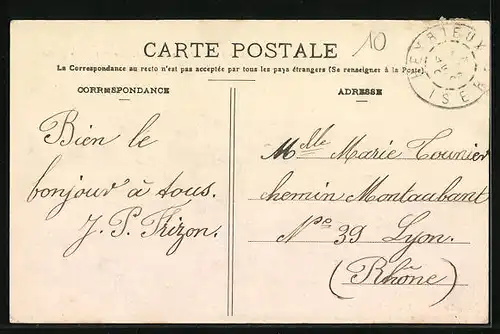 CARTE POSTALE
10
La Correspondance au recto n'est pas acceptée par tous les pays étrangers (Se renseigner à la Poste)
HEYRIEUX
ISERE
CORRESPONDANCE
ADRESSE
Bien le
bonjour à tous.
J. P. Frizon.
Mlle Marie Tounier
chemin Montaubant
No 39 Lyon.
(Rhône)